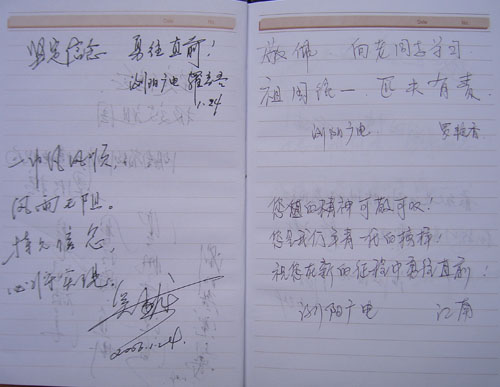 Date No.
坚定信念 勇往直前!
浏阳广电
1.24
一帆风顺,
风雨无阻。
持之信念,
2006.1.24.
Date No.
敬佩 向老同志学习
祖国统一 匹夫有责
浏阳广电 罗 香
您的精神可敬可叹!
您是我们年青一代的榜样!
祝您在新的征程中勇往直前!
浏阳广电 江南